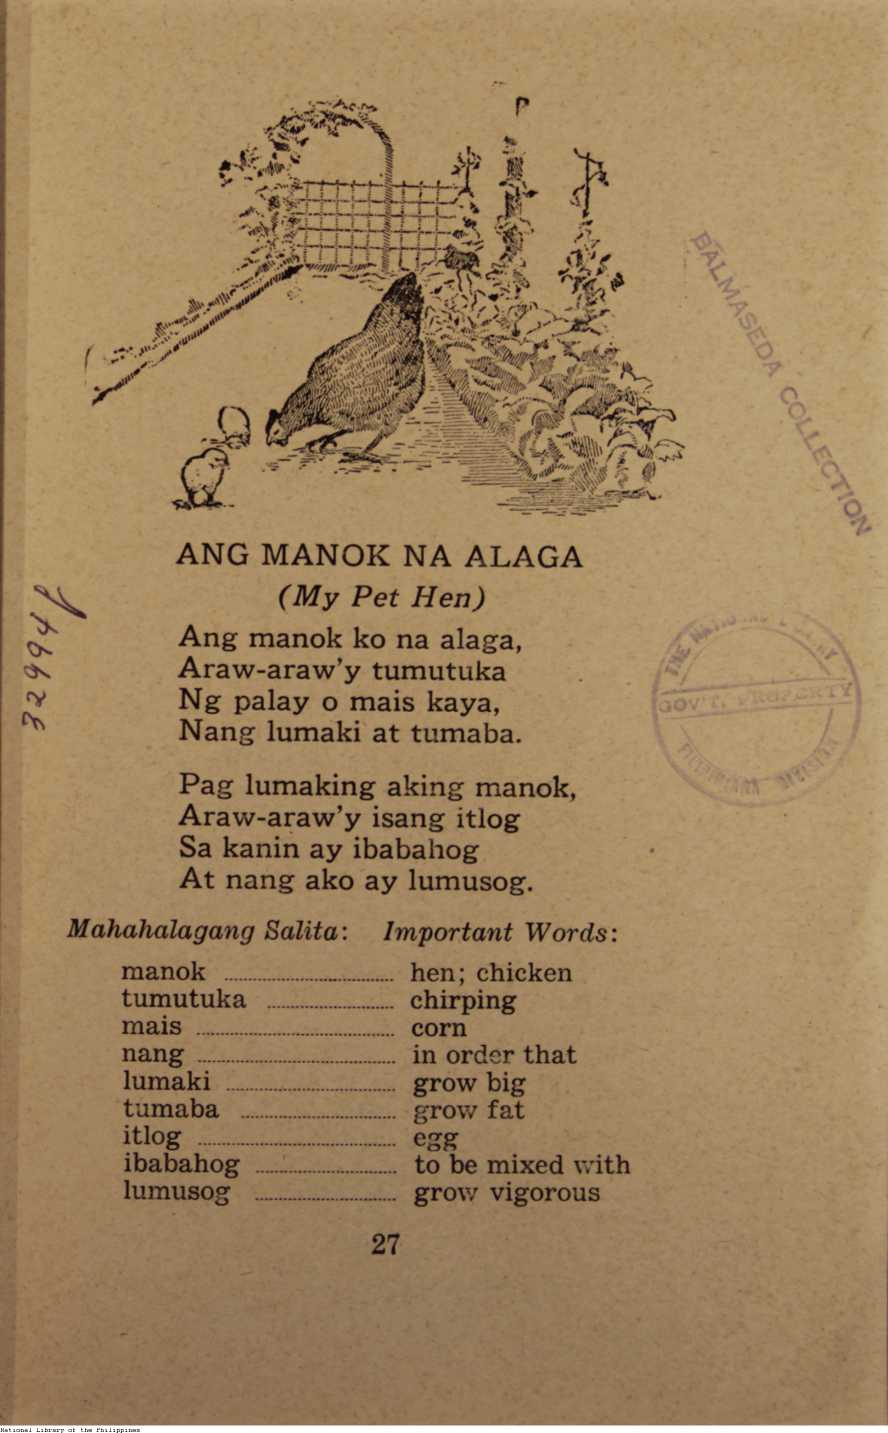 BALMASEDA COLLECTION
ANG MANOK NA ALAGA
(My Pet Hen)
Ang manok ko na alaga,
Araw-araw'y tumutuka
Ng palay o mais kaya,
Nang lumaki at tumaba.
Pag lumaking aking manok,
Araw-araw'y isang itlog
Sa kanin ay ibabahog
At nang ako ay lumusog.
32994
THE NATIONAL
GOV'T. PROPERTY
Mahahalagang Salita: Important Words:
manok ........ hen; chicken
tumutuka ........ chirping
mais ........ corn
nang ........ in order that
lumaki ........ grow big
tumaba ........ grow fat
itlog ........ egg
ibabahog ........ to be mixed with
lumusog ........ grow vigorous
27
National Library of the Philippines